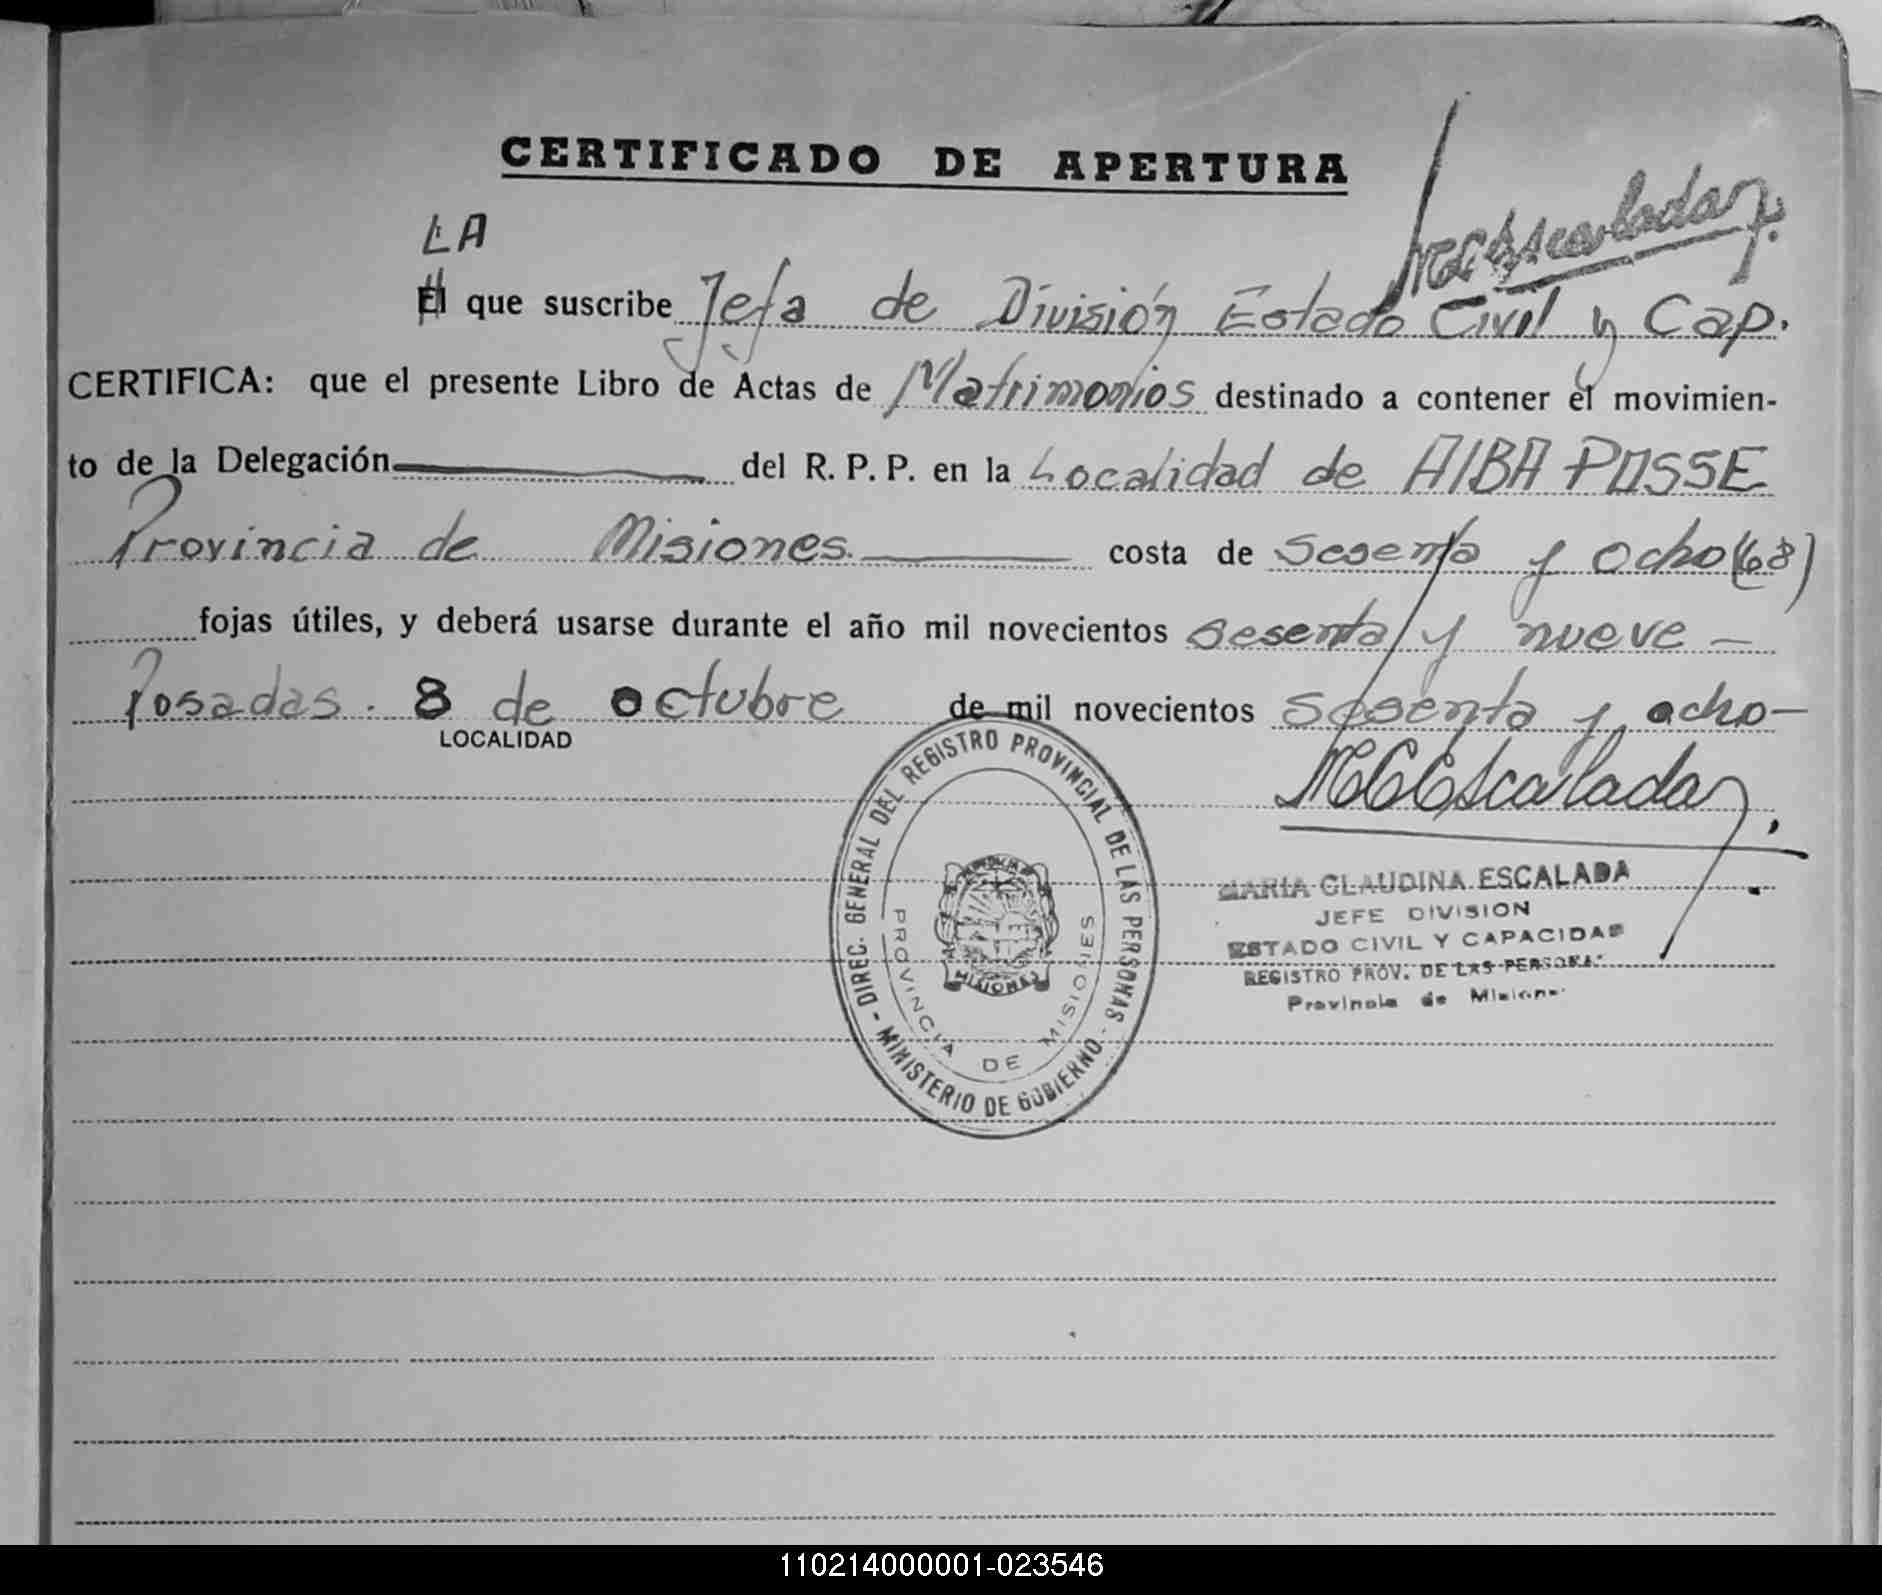 CERTIFICADO DE APERTURA
MCEscalada
LA
El que suscribe Jefa de División Estado Civil y Cap.
CERTIFICA: que el presente Libro de Actas de Matrimonios destinado a contener el movimien-
to de la Delegación del R. P. P. en la Localidad de AlBA POSSE
Provincia de Misiones. costa de Sesenta y ocho (68)
fojas útiles, y deberá usarse durante el año mil novecientos sesenta y nueve -
Posadas. 8 de octubre de mil novecientos sesenta y ocho -
LOCALIDAD
MCEscalada
MARIA CLAUDINA ESCALADA
JEFE DIVISION
ESTADO CIVIL Y CAPACIDAD
REGISTRO PROV. DE LAS PERSONAS
Provincia de Misiones
DIREC. GENERAL DEL REGISTRO PROVINCIAL DE LAS PERSONAS - MINISTERIO DE GOBIERNO -
PROVINCIA DE MISIONES
MISIONES
110214000001-023546